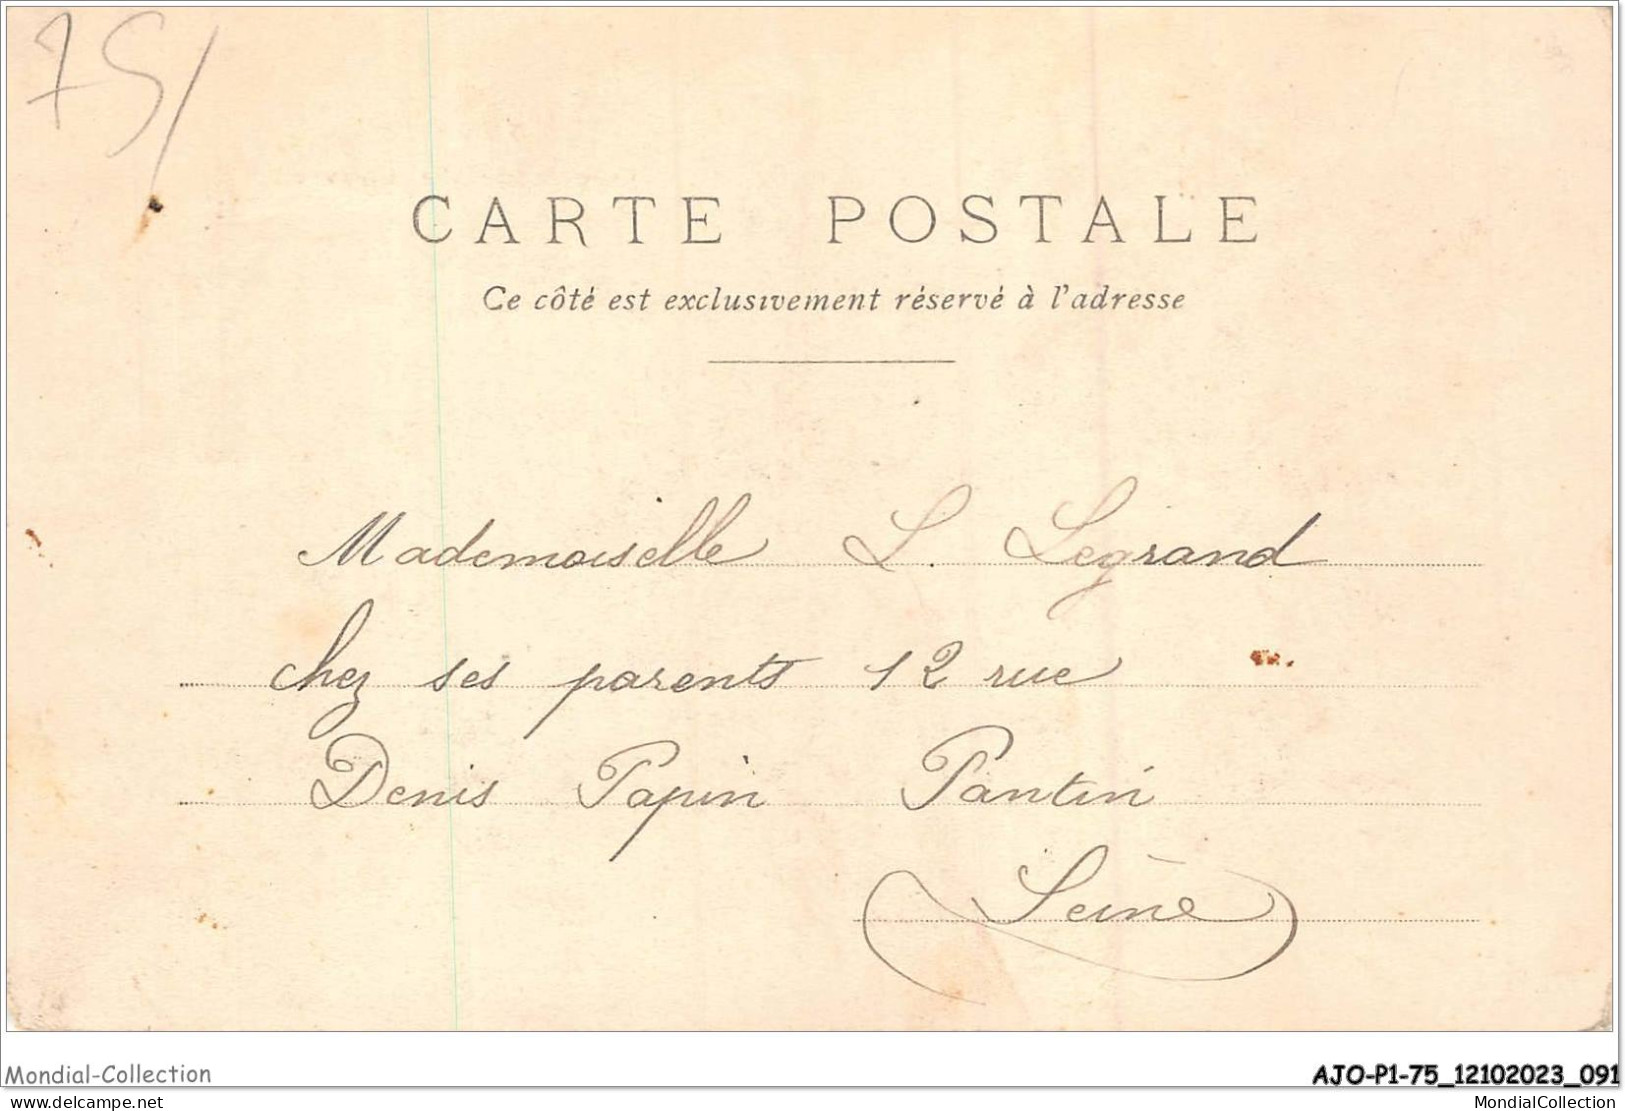 75/
CARTE POSTALE
Ce côté est exclusivement réservé à l'adresse
Mademoiselle L. Legrand
chez ses parents 12 rue
Denis Papin Pantin
Seine
Mondial-Collection
AJO-P1-75_12102023_091
www.delcampe.net
MondialCollection